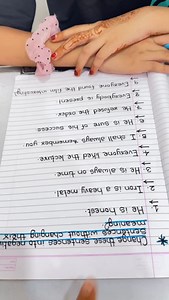 * Change these sentences into negative
sentences without changing their
meaning.
1. He is honest.
→
2. Iron is a heavy metal
→
3. He is always on time.
→
4. Everyone liked the lecture.
→
5. I shall always remember you
→
6. He is sure of his success
→
7. He refused the order
→
8. Everybody is present
→
9. Everyone found the film interesting